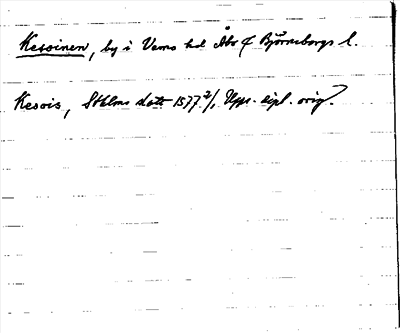 Kessinen, by i Vemo hd Åbo & Björneborgs l.
Kesois, Sthlms slott 1577 2/1 Upps. dipl. orig.